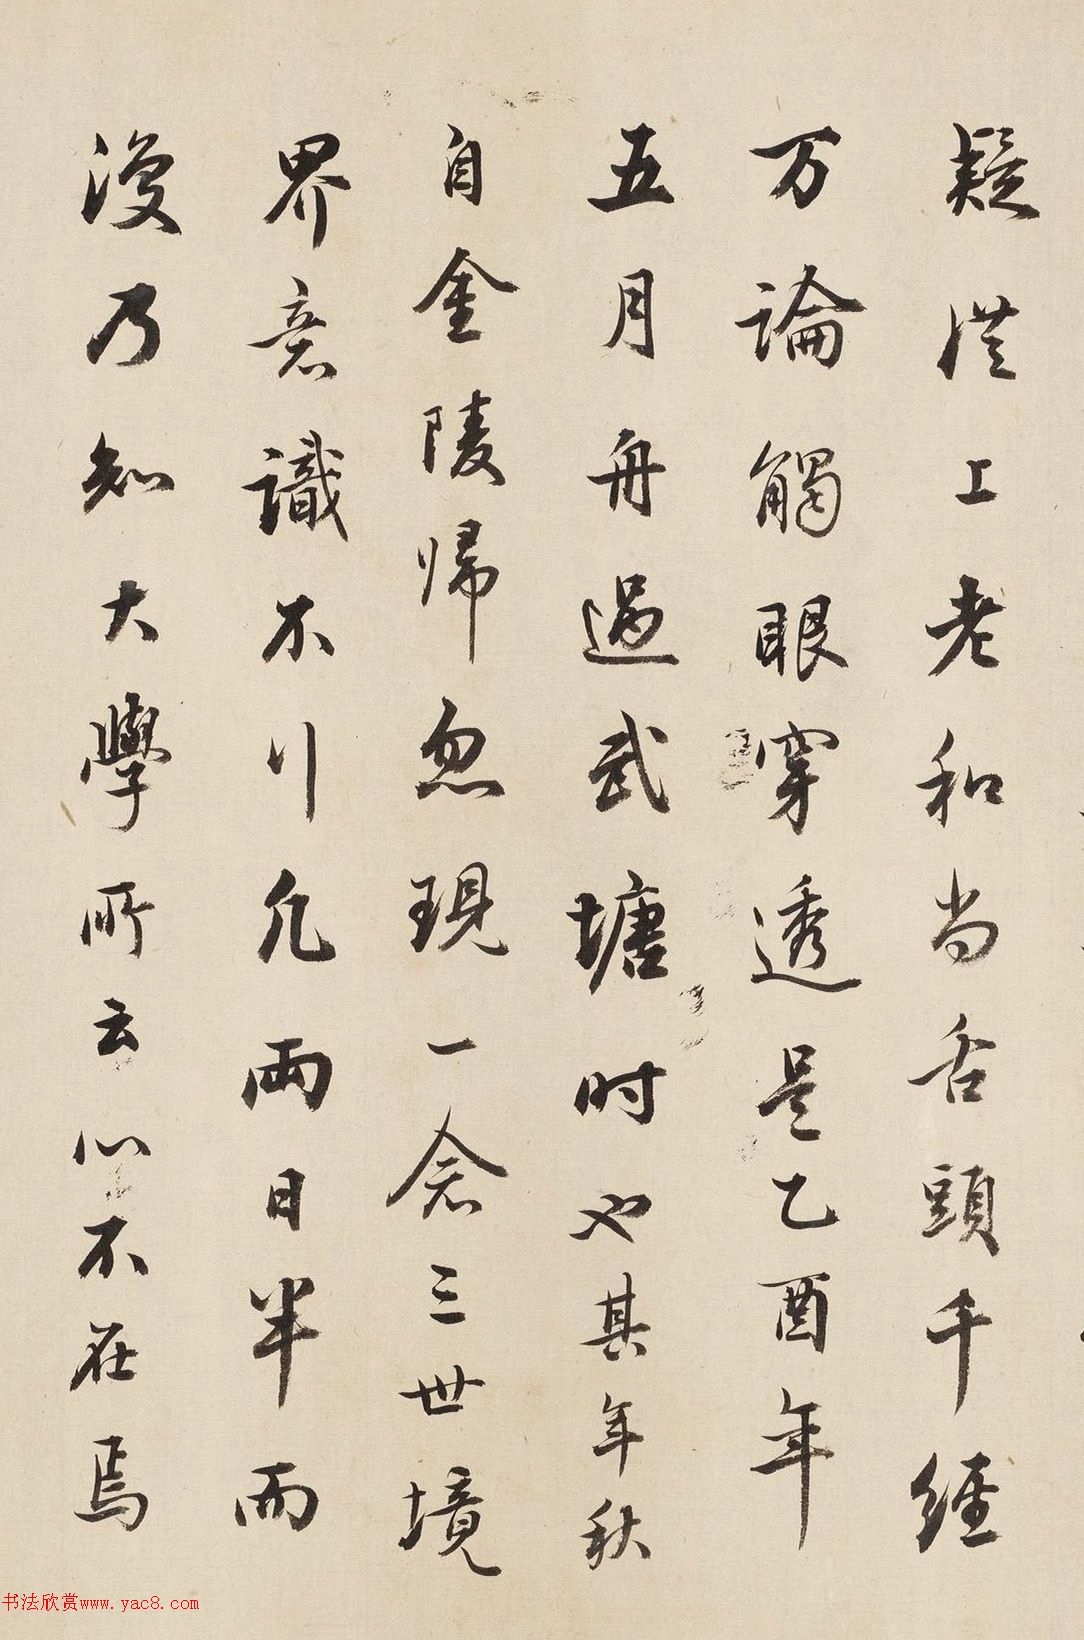 疑從上老和尚舌頭千經
万論觸眼穿透是乙酉年
五月舟過武塘时也其年秋
自金陵帰忽現一念三世境
界意識不行凡兩日半而
復乃知大學所云心不在焉
书法欣赏www.yac8.com